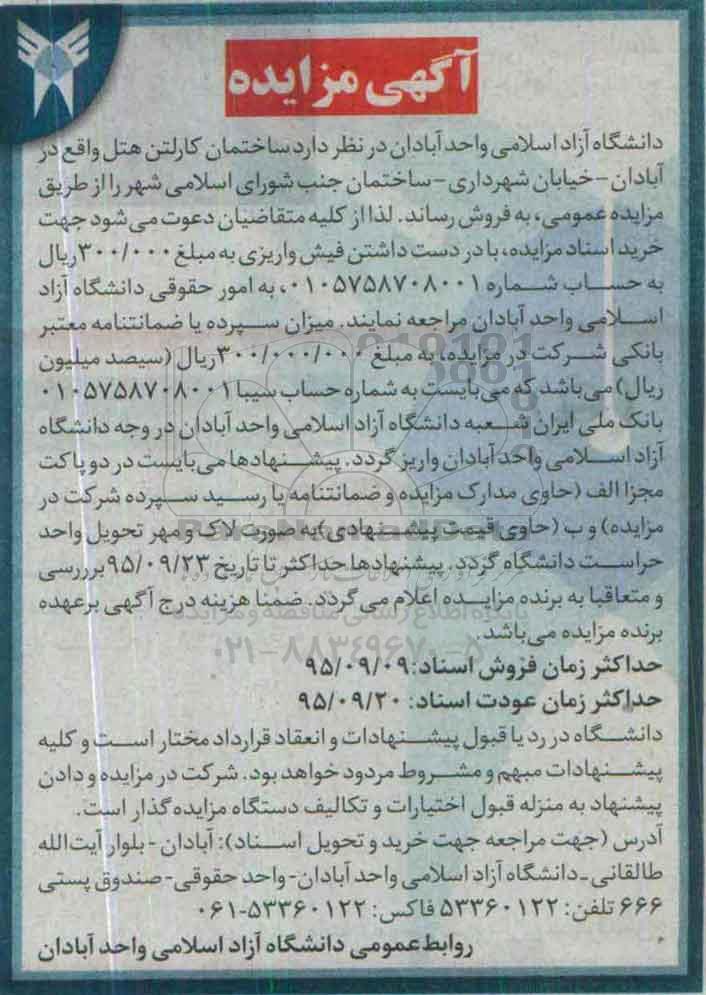 آگهی مزایده
دانشگاه آزاد اسلامی واحد آبادان در نظر دارد ساختمان کارلتن هتل واقع در
آبادان - خیابان شهرداری - ساختمان جنب شورای اسلامی شهر را از طریق
مزایده عمومی، به فروش رساند. لذا از کلیه متقاضیان دعوت می شود جهت
خرید اسناد مزایده، با در دست داشتن فیش واریزی به مبلغ ۳۰۰/۰۰۰ ریال
به حساب شماره ۰۱۰۵۷۵۸۷۰۸۰۰۱، به امور حقوقی دانشگاه آزاد
اسلامی واحد آبادان مراجعه نمایند. میزان سپرده یا ضمانتنامه معتبر
بانکی شرکت در مزایده، به مبلغ ۳۰۰/۰۰۰/۰۰۰ ریال (سیصد میلیون
ریال) می باشد که می بایست به شماره حساب سیبا ۰۱۰۵۷۵۸۷۰۸۰۰۱
بانک ملی ایران شعبه دانشگاه آزاد اسلامی واحد آبادان در وجه دانشگاه
آزاد اسلامی واحد آبادان واریز گردد. پیشنهادها می بایست در دو پاکت
مجزا الف (حاوی مدارک مزایده و ضمانتنامه یا رسید سپرده شرکت در
مزایده) و ب (حاوی قیمت پیشنهادی) به صورت لاک و مهر تحویل واحد
حراست دانشگاه گردد. پیشنهادها حداکثر تا تاریخ ۹۵/۰۹/۲۳ بررسی
و متعاقبا به برنده مزایده اعلام می گردد. ضمنا هزینه درج آگهی برعهده
برنده مزایده می باشد.
۰۲۱-۸۸۳۴۹۶۷۰-۵
حداکثر زمان فروش اسناد: ۹۵/۰۹/۰۹
حداکثر زمان عودت اسناد: ۹۵/۰۹/۲۰
دانشگاه در رد یا قبول پیشنهادات و انعقاد قرارداد مختار است و کلیه
پیشنهادات مبهم و مشروط مردود خواهد بود. شرکت در مزایده و دادن
پیشنهاد به منزله قبول اختیارات و تکالیف دستگاه مزایده گذار است.
آدرس (جهت مراجعه جهت خرید و تحویل اسناد): آبادان - بلوار آیت الله
طالقانی - دانشگاه آزاد اسلامی واحد آبادان - واحد حقوقی - صندوق پستی
۶۶۶ تلفن: ۵۳۳۶۰۱۲۲ فاکس: ۵۳۳۶۰۱۲۲-۰۶۱
روابط عمومی دانشگاه آزاد اسلامی واحد آبادان